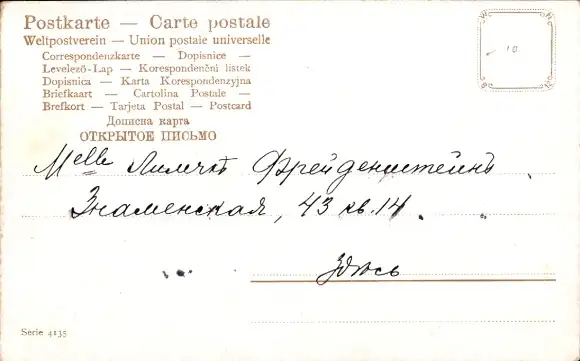 Postkarte — Carte postale
Weltpostverein — Union postale universelle
Correspondenzkarte — Dopisnice —
Levelező-Lap — Korespondenční lístek
Dopisnica — Karta Korespondenzyjna
Briefkaart — Cartolina Postale —
Brefkort — Tarjeta Postal — Postcard
Дописна карта
ОТКРЫТОЕ ПИСЬМО
Melle Лиличкѣ Фрейденштейнъ
Знаменская, 43 кв. 14.
Здѣсь
Serie 4135